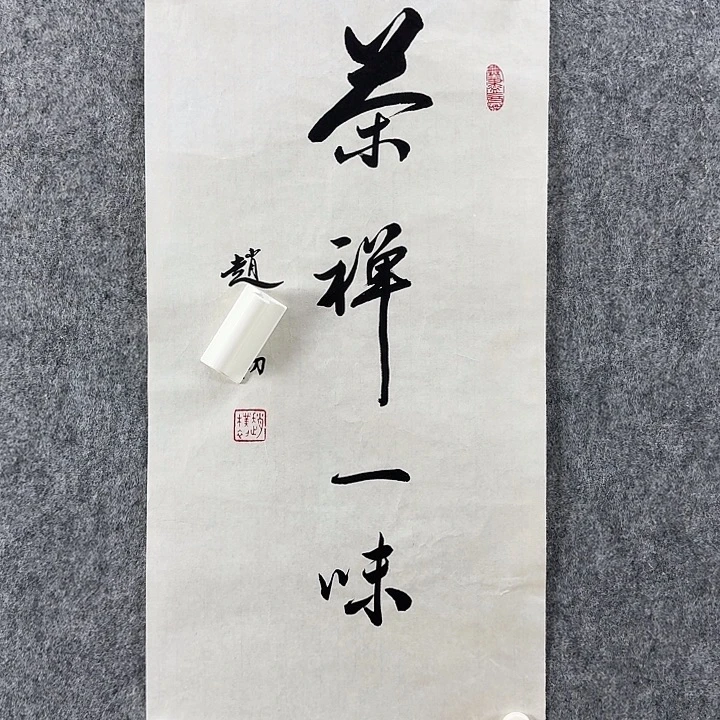 茶禅一味
趙